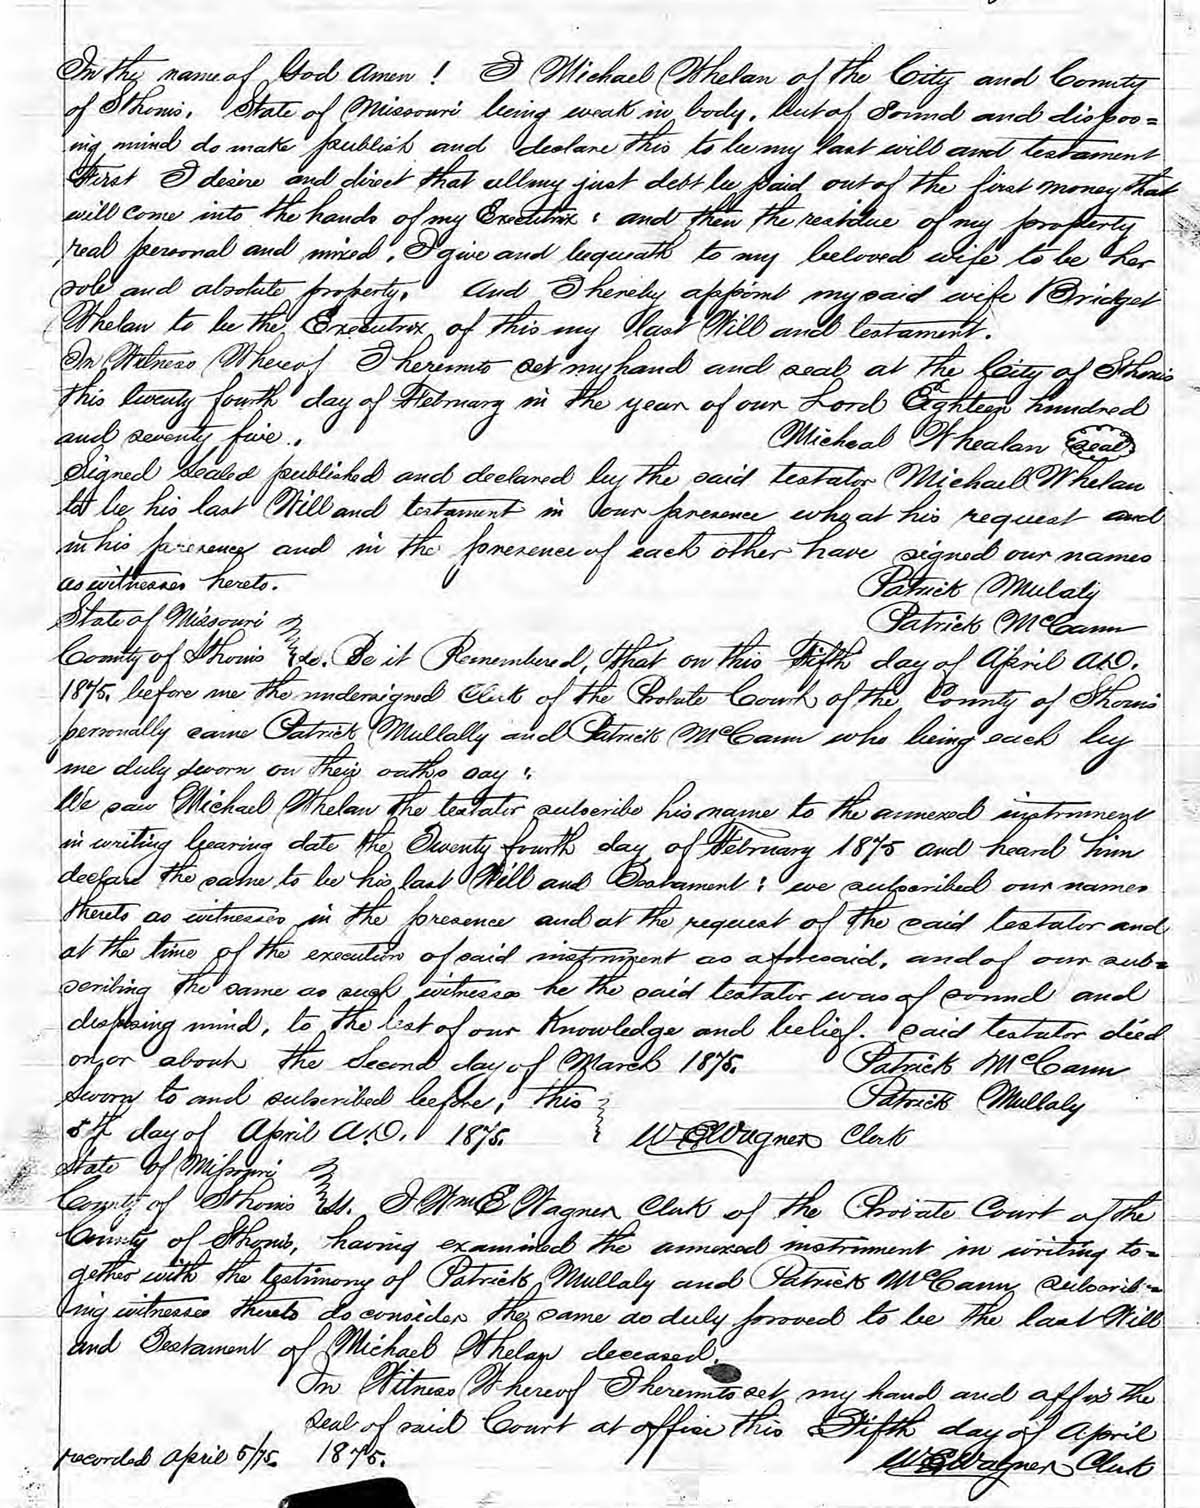 In the name of God Amen! I Michael Whelan of the City and County
of St Louis, State of Missouri being weak in body, but of sound and dispos=
ing mind do make publish and declare this to be my last will and testament
First I desire and direct that all my just debt be paid out of the first money that
will come into the hands of my Executrix: and then the residue of my property
real personal and mixed, I give and bequeath to my beloved wife to be her
sole and absolute property. And I hereby appoint my said wife Bridget
Whelan to be the Executrix of this my last Will and testament.
In Witness Whereof I hereunto set my hand and seal at the City of St Louis
this twenty fourth day of February in the year of our Lord Eighteen hundred
and seventy five. Micheal Whealan seal
Signed sealed published and declared by the said testator Michael Whelan
to be his last Will and testament in our presence who at his request and
in his presence and in the presence of each other have signed our names
as witnesses hereto. Patrick Mulaly
State of Missouri Patrick McCann
County of St Louis ss. Be it Remembered, that on this Fifth day of April A.D.
1875, before me the undersigned Clerk of the Probate Court of the County of St Louis
personally came Patrick Mullally and Patrick McCann who being each by
me duly sworn on their oaths say:
We saw Michael Whelan the testator subscribe his name to the annexed instrument
in writing bearing date the Twenty fourth day of February 1875 and heard him
declare the same to be his last Will and Testament: we subscribed our names
thereto as witnesses in the presence and at the request of the said testator and
at the time of the execution of said instrument as aforesaid, and of our sub=
scribing the same as such witnesses he the said testator was of sound and
disposing mind, to the best of our Knowledge and belief. said testator died
on or about the Second day of March 1875. Patrick McCann
Sworn to and subscribed before, this Patrick Mullaly
5th day of April A.D. 1875. W E Wagner Clerk
State of Missouri
County of St Louis ss. I Wm E Wagner Clerk of the Probate Court of the
County of St Louis, having examined the annexed instrument in writing to=
gether with the testimony of Patrick Mullaly and Patrick McCann subscrib=
ing witnesses thereto do consider the same as duly proved to be the last Will
and Testament of Michael Whelan deceased.
In Witness Whereof I hereunto set my hand and affix the
seal of said Court at office this Fifth day of April
recorded April 5/75. 1875. W E Wagner Clerk